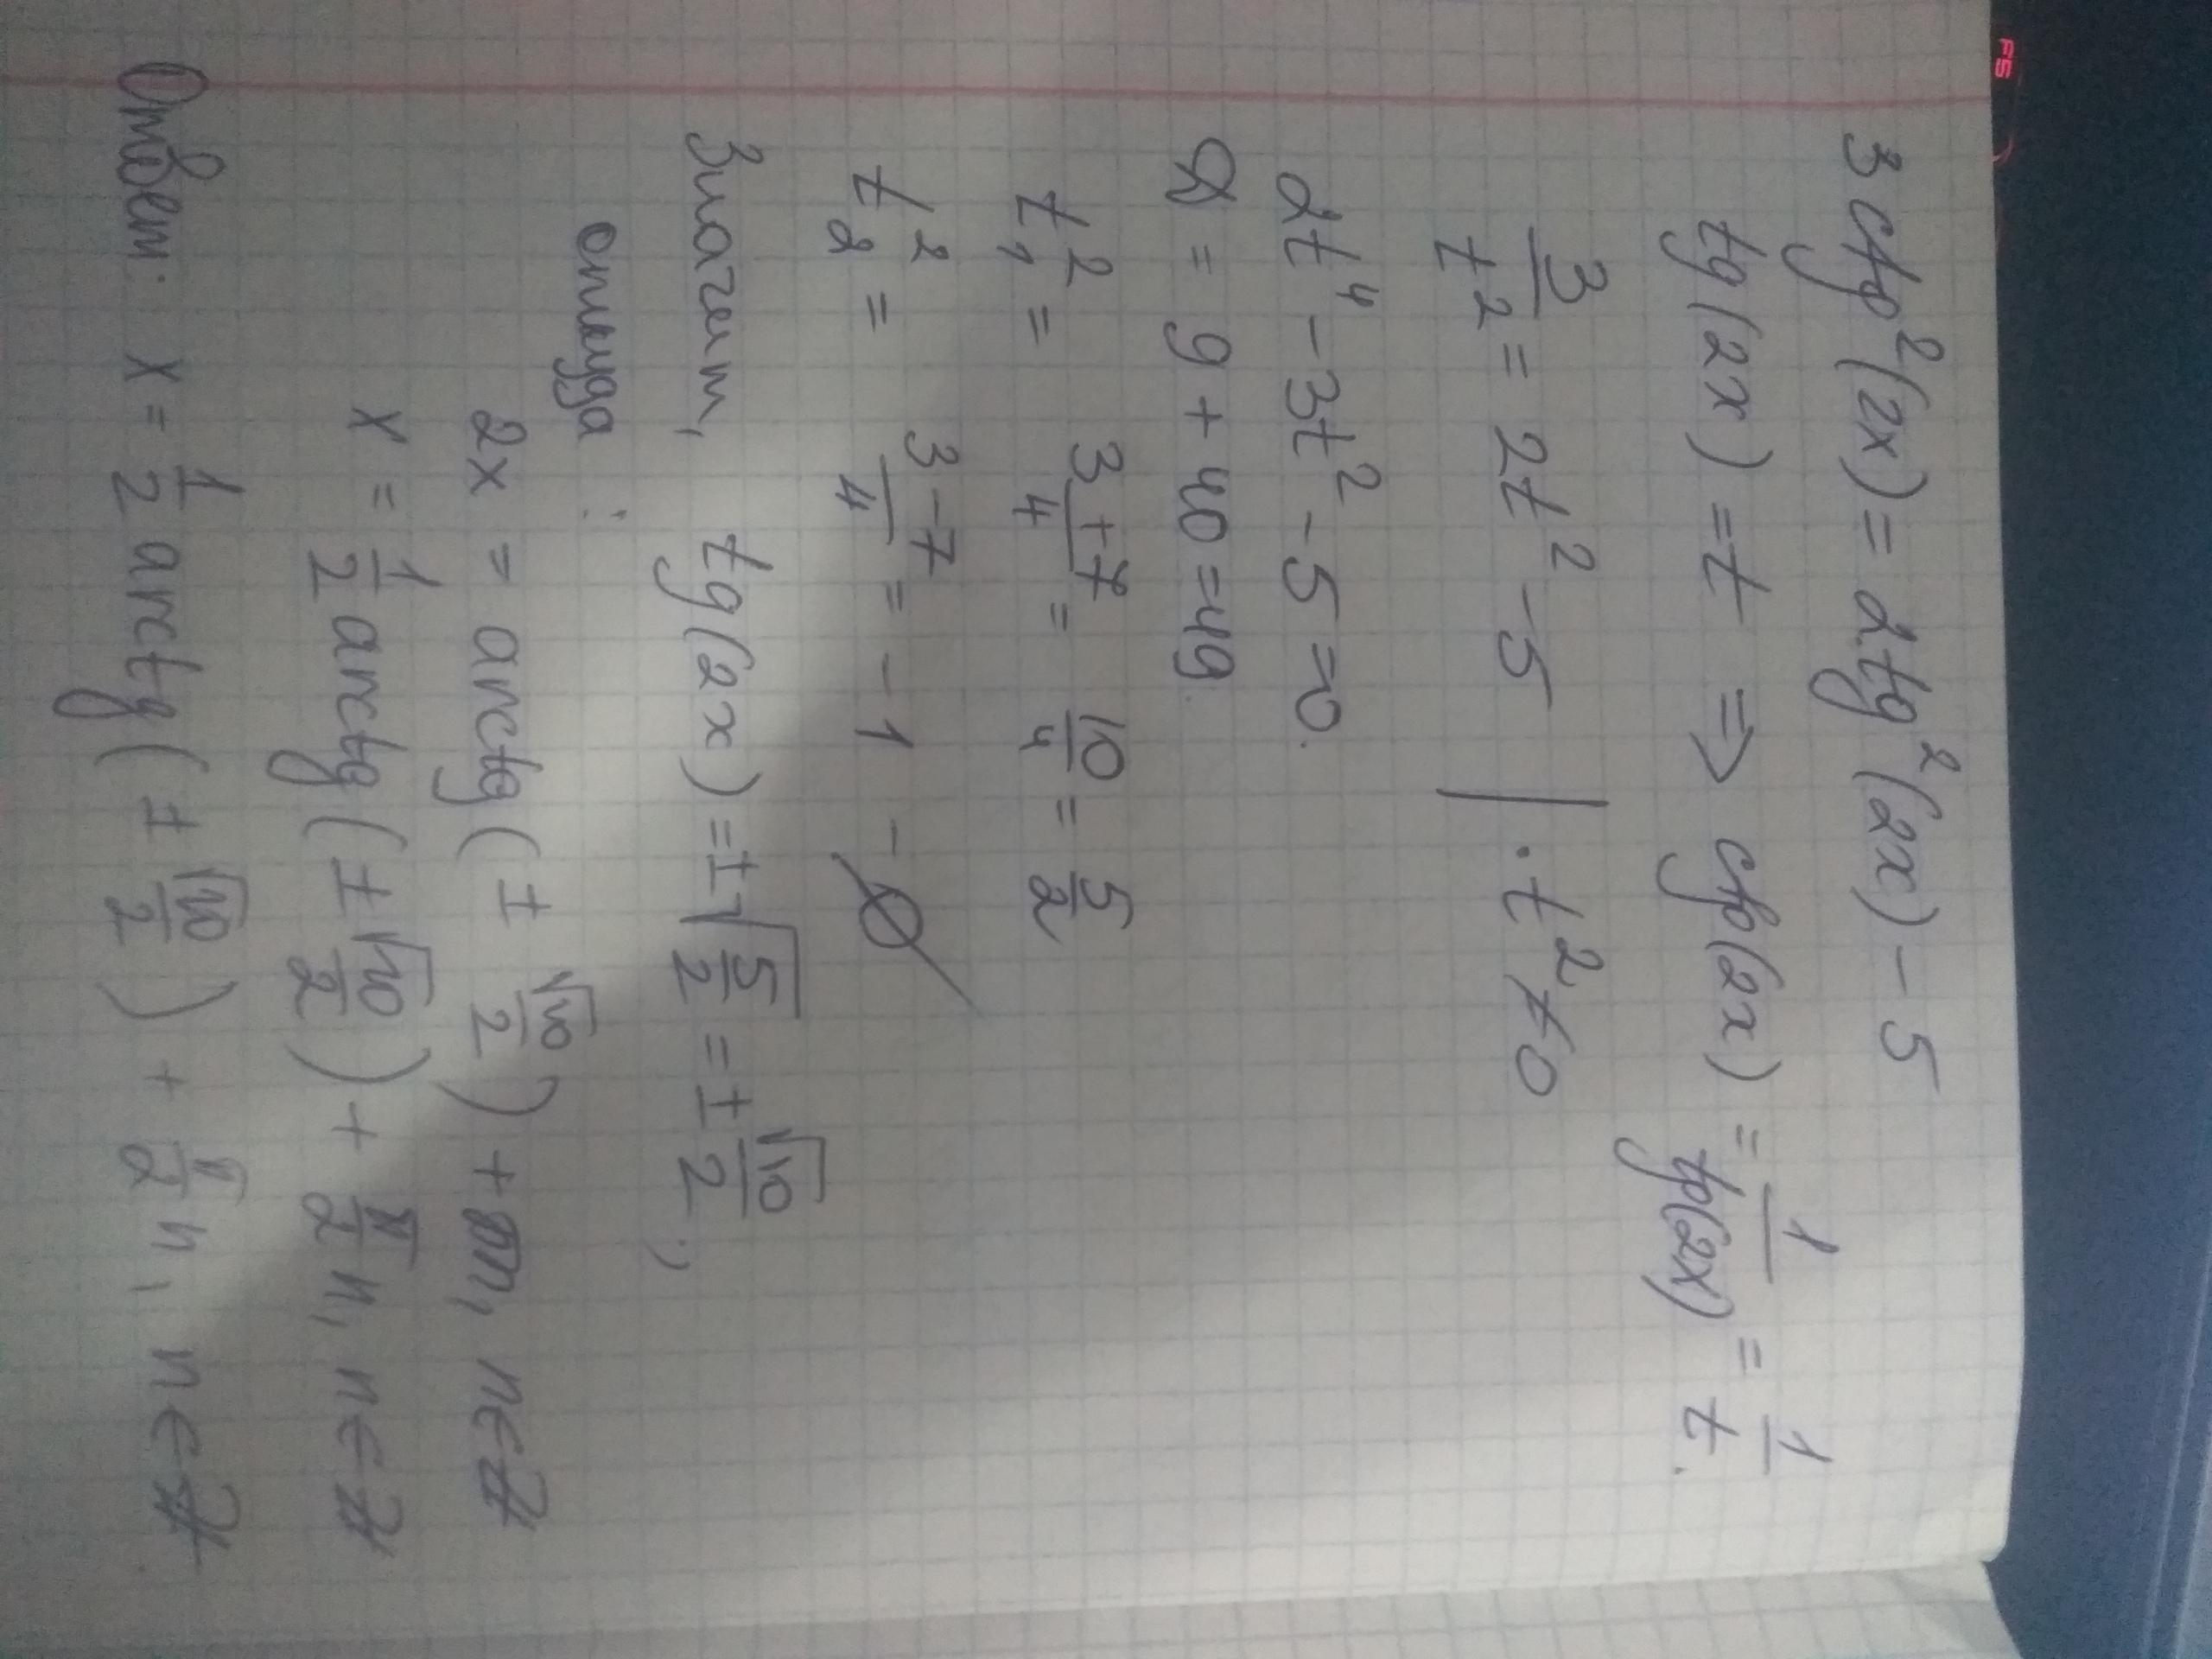 3 ctg²(2x) = 2tg²(2x) - 5
tg(2x) = t ⇒ ctg(2x) = 1/tg(2x) = 1/t.
3/t² = 2t² - 5 | · t² ≠ 0
2t⁴ - 3t² - 5 = 0.
D = 9 + 40 = 49.
t₁² = (3+7)/4 = 10/4 = 5/2
t₂² = (3-7)/4 = -1 - ∅
Значит, tg(2x) = ±√(5/2) = ±√10/2;
откуда:
2x = arctg(±√10/2) + πn, n∈Z
x = 1/2 arctg(±√10/2) + π/2 n, n∈Z
Ответ: x = 1/2 arctg(±√10/2) + π/2 n, n∈Z.
F5